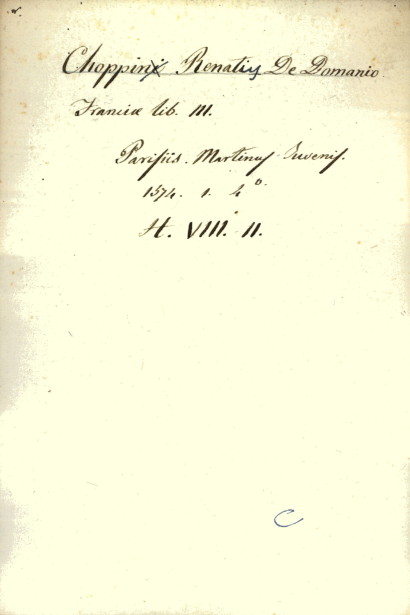 Choppin Renatus De Domanio
Franciæ lib. III.
Parisiis. Martinus Iuvenis.
1574. 1. 4°.
H. VIII. 11.
C